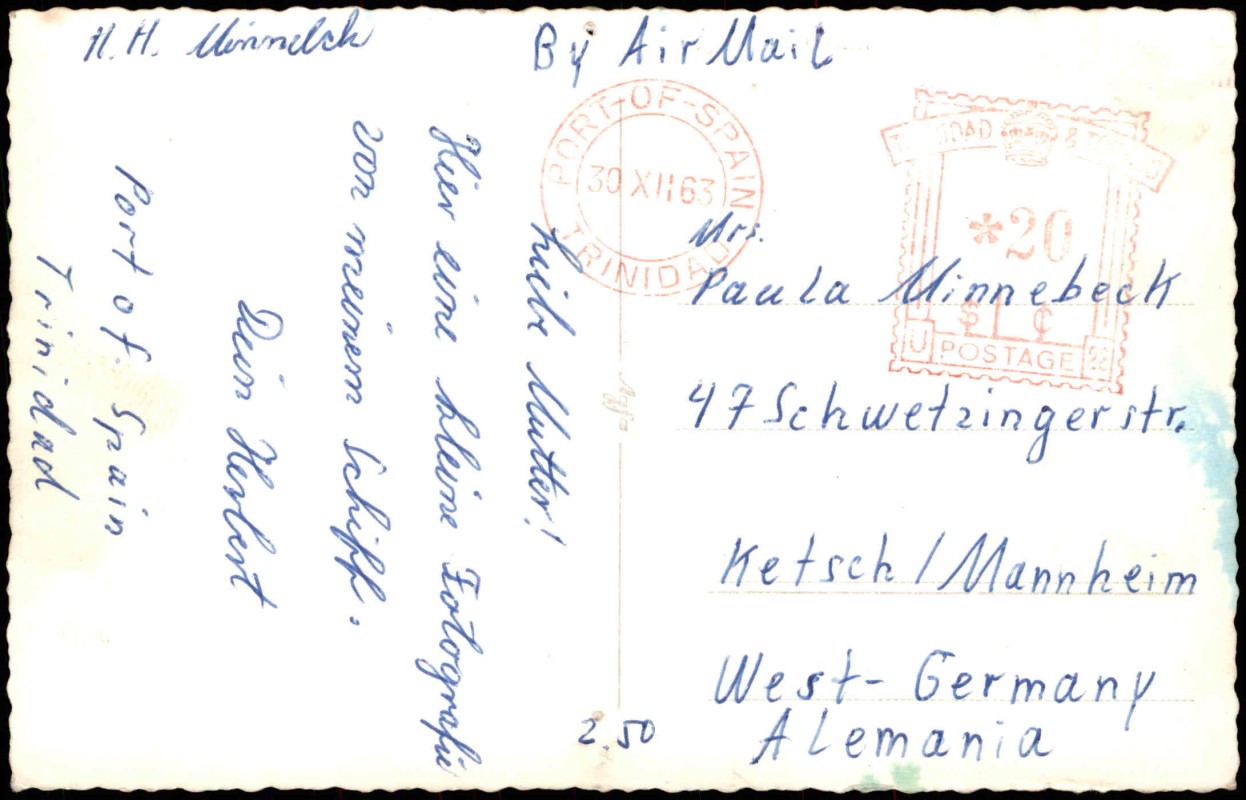 H. H. Minnebeck
By Air Mail
PORT-OF-SPAIN
30 XII 63
TRINIDAD
TRINIDAD & TOBAGO
*20
$ ¢
U POSTAGE 22
Liebe Mutter!
Hier eine kleine Fotografie
von meinem Schiff.
Dein Herbert
Port of Spain
Trinidad
Mrs.
Paula Minnebeck
47 Schwetzingerstr.
Ketsch / Mannheim
West-Germany
Alemania
Agfa
2.50